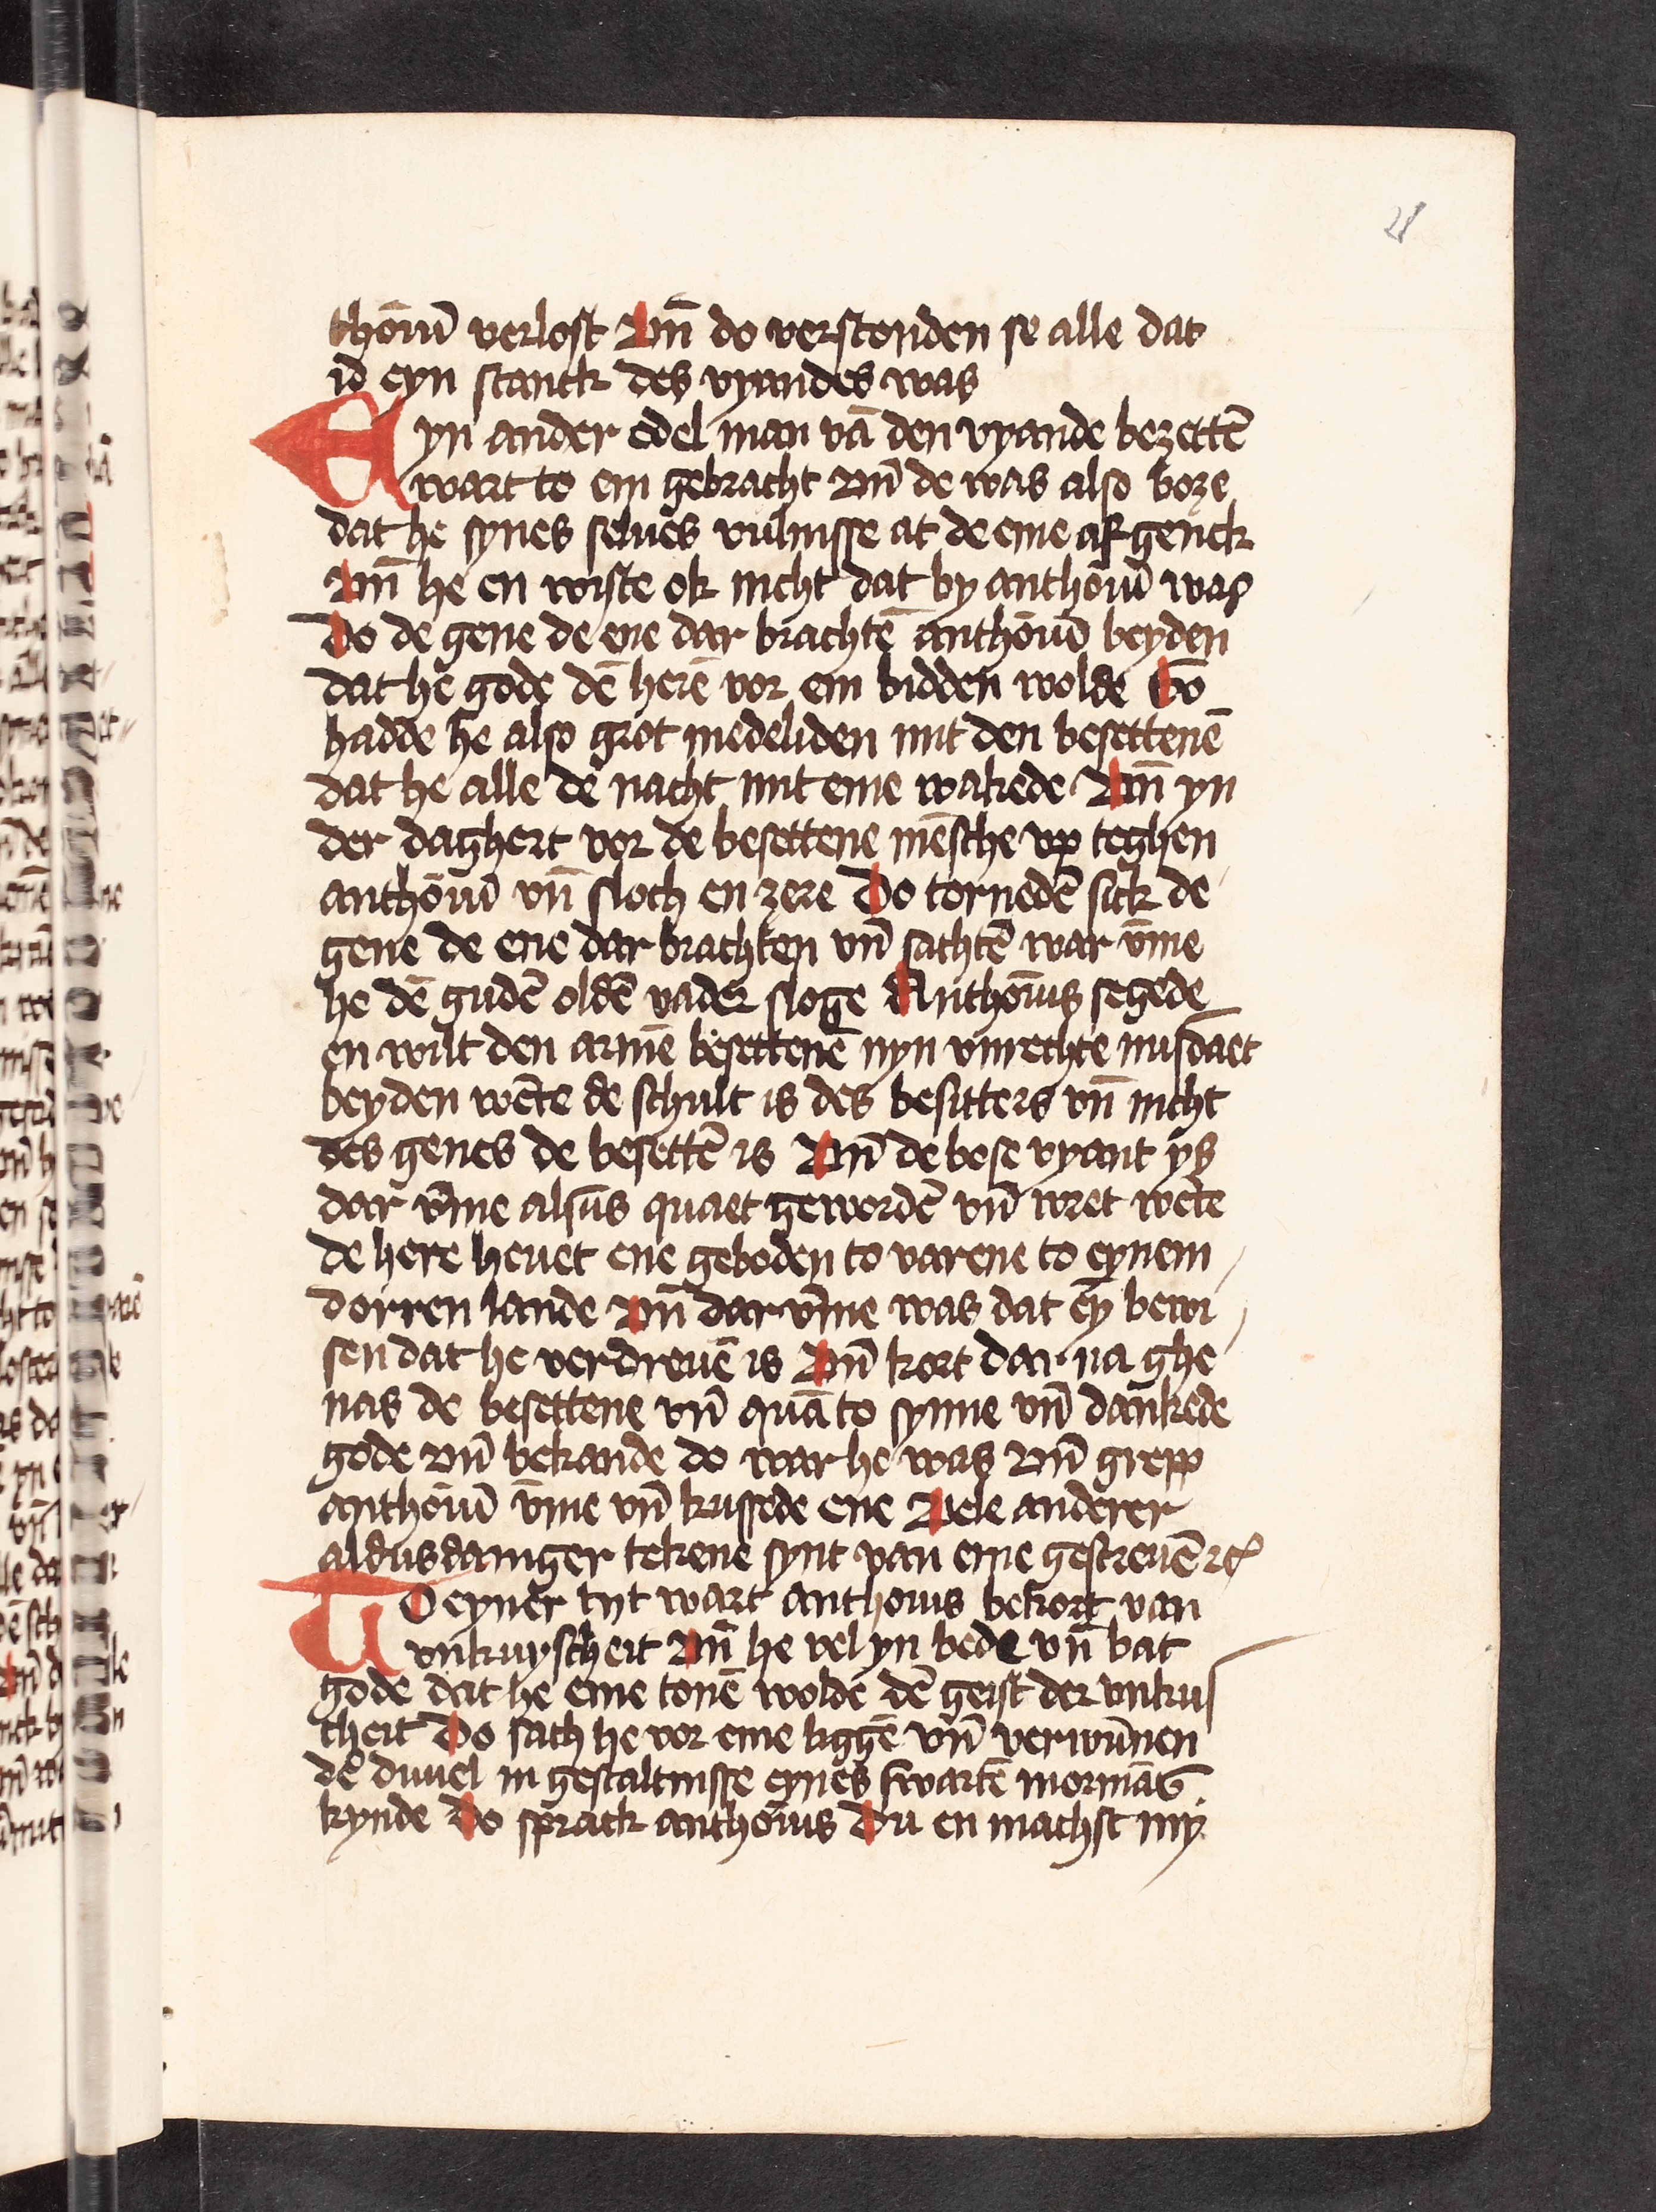 21
thoniū verlost Vn̄ do verstonden se alle dat
id eyn stanck des vyandes was
Eyn ander edel man vā den vyande bezettē
wart to em gebracht Vn̄ de was also boze
dat he synes selues vulnisse at de eme af genck
Vn̄ he en wiste ok nicht dat by anthoniū was
Do de gene de ene dar brachtē anthoniū beyden
dat he gode dē herē vor em bidden wolde Do
hadde he also grot medeliden mit den besettenē
dat he alle de nacht mit eme wakede Vn̄ yn
der daghert vor de besettene mēsche vp teghen
anthoniū vn̄ sloch en zere Do tornedē sick de
gene de ene dar brachten vn̄ sachtē war v̄me
he dē gudē oldē vader sloge Anthonius segede
en wilt den armē besettenē nyn vnrechte misdaet
beyden wēte de schult is des besitters vn̄ nicht
des genes de besettē is Vn̄ de bose vyant ys
dar v̄me alsus quaet gewordē vn̄ wret wēte
de here heuet ene geboden to varene to eynem
dorren lande Vn̄ dar v̄me was dat eȳ bewi
sen dat he verdreuē is Vn̄ kort dar na ghe
nas de besettene vn̄ quā to synne vn̄ dankede
gode Vn̄ bekande do war he was Vn̄ grepp
anthoniū v̄me vn̄ kussede ene Vele anderer
aldusdaniger tekene synt van eme gescreuē rc̄
To eyner tyt wart anthonius bekort van
vnkuyscheit Vn̄ he vel yn bede vn̄ bat
gode dat he eme tonē wolde dē geist der vnkus
cheit Do sach he vor eme liggē vn̄ verwūnen
dē duuel in gestaltnisse eynes swartē mormās
kynde Do sprack anthonius Du en machst my